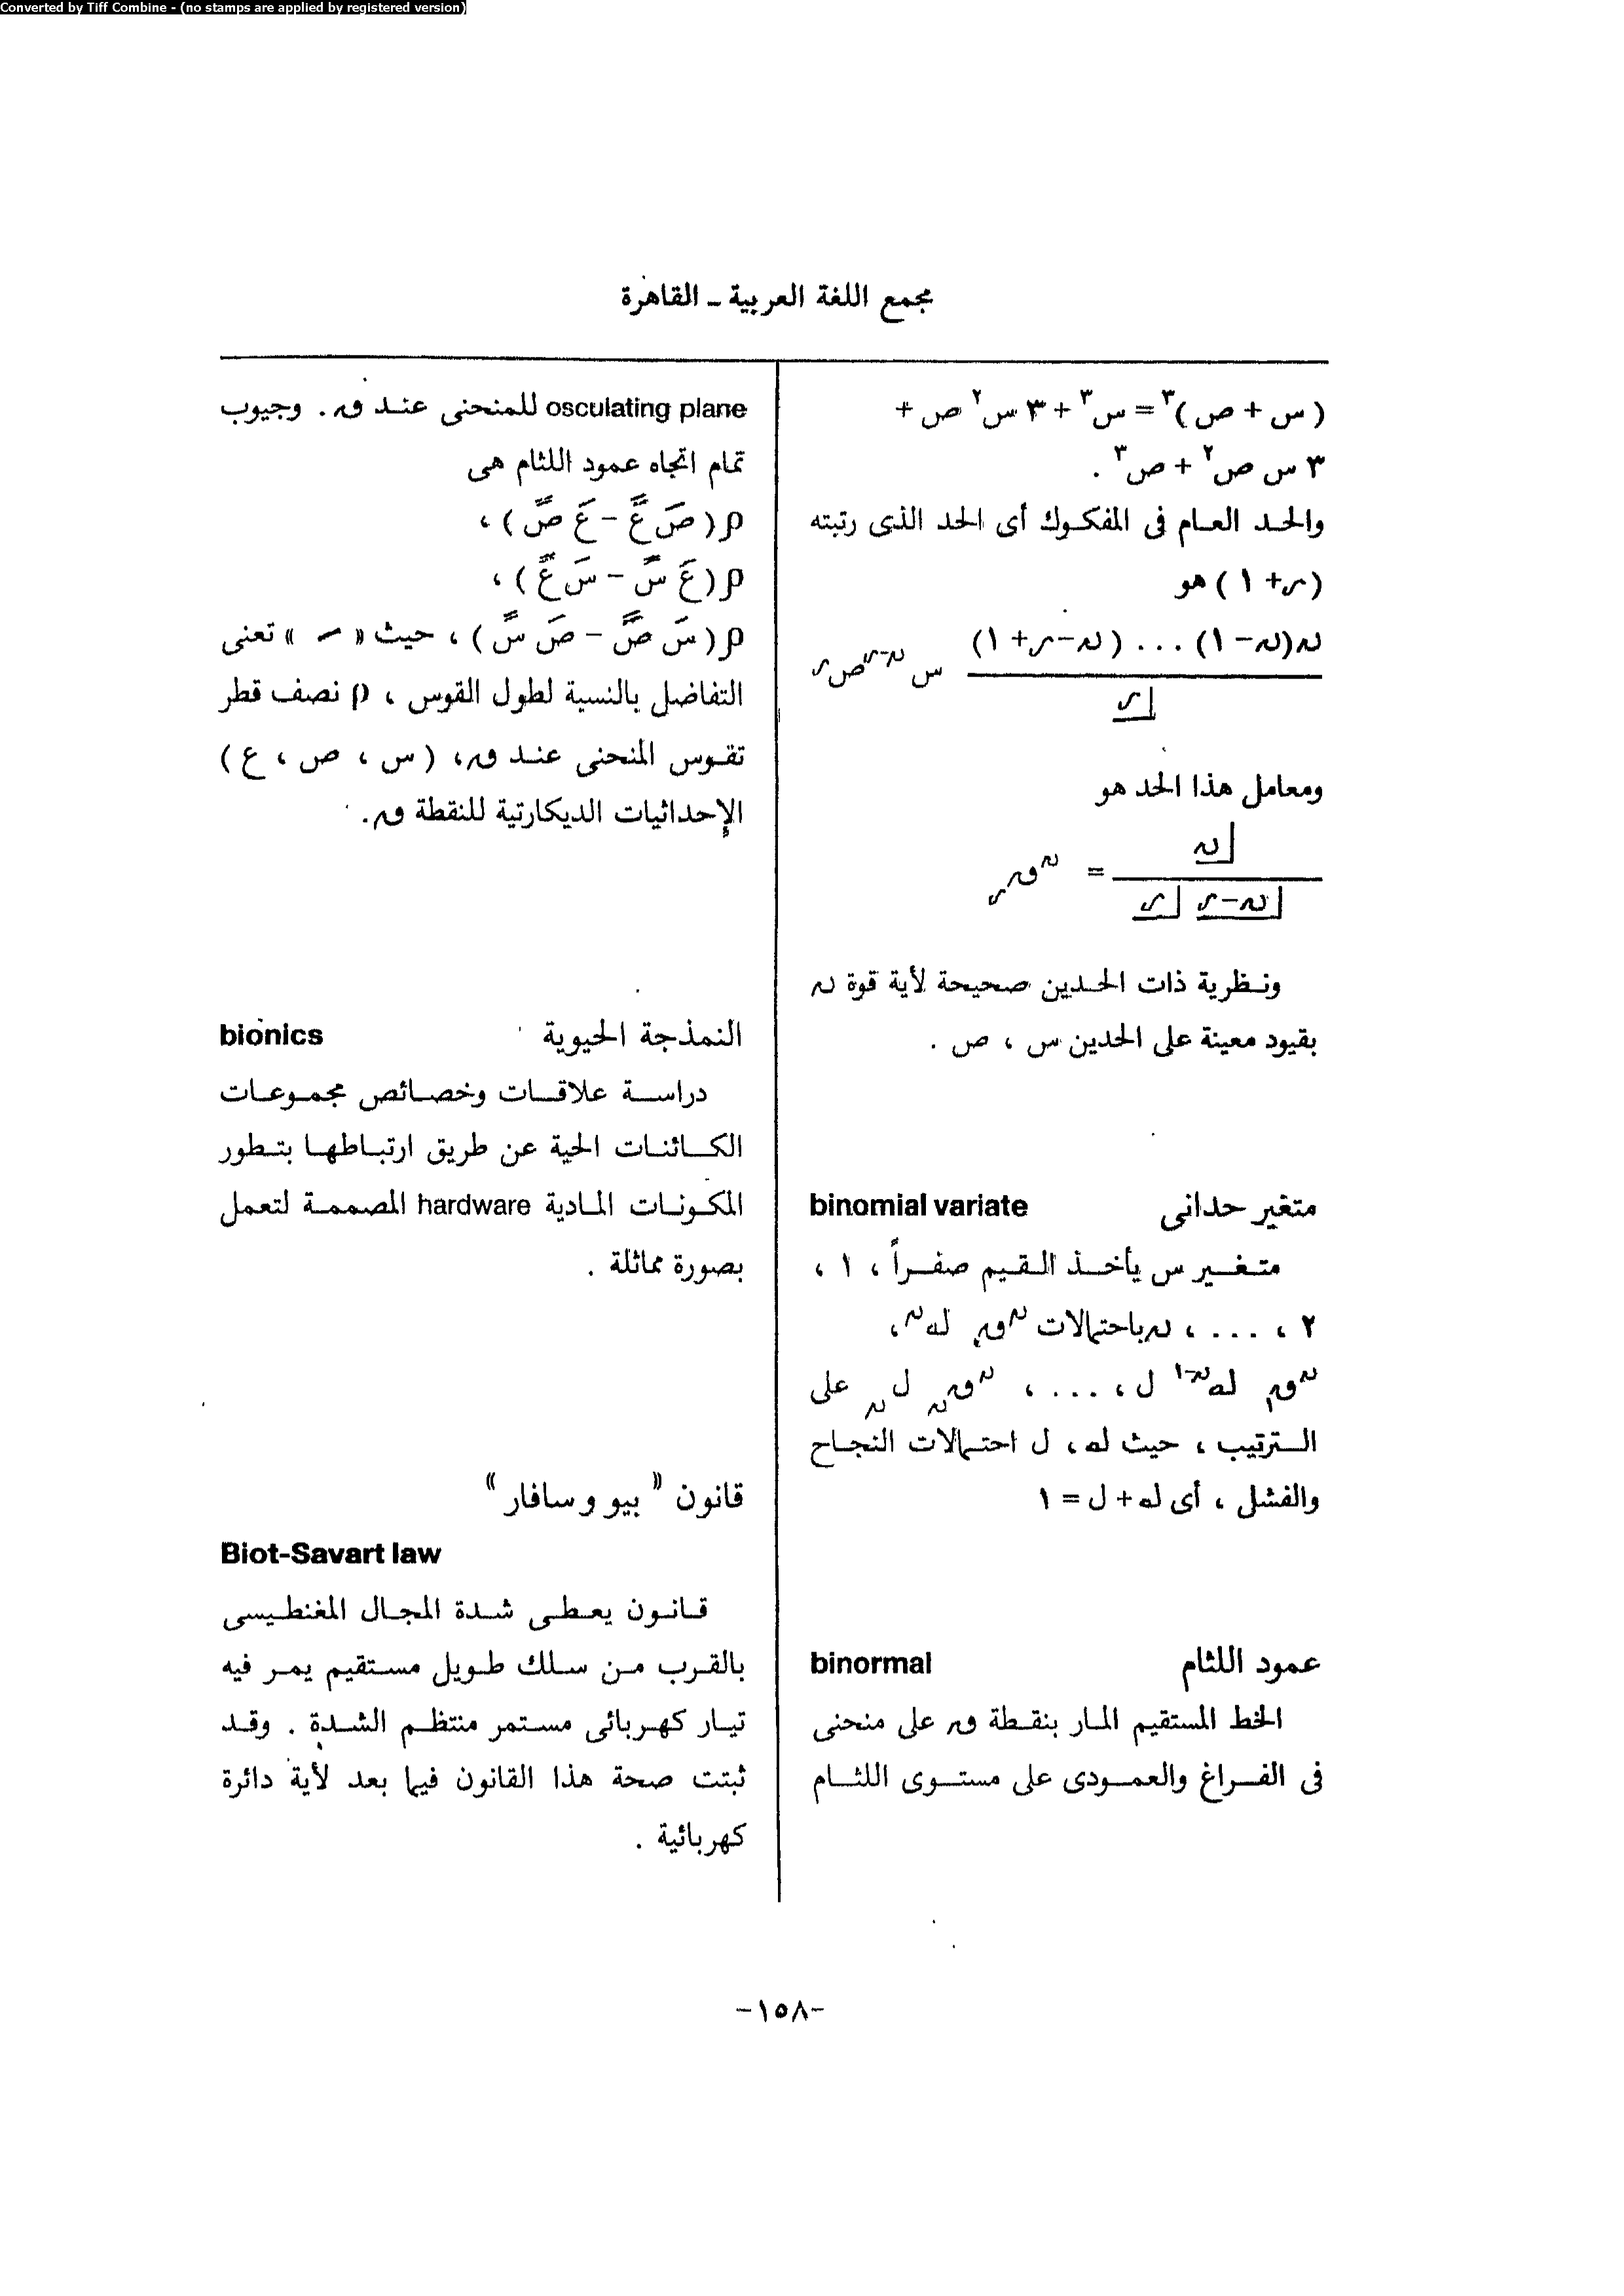 Converted by Tiff Combine - (no stamps are applied by registered version)
مجمع اللغة العربية ـ القاهرة
( س + ص )٣ = س٣ + ٣ س٢ ص +
٣ س ص٢ + ص٣ .
والحد العام فى المفكوك أى الحد الذى رتبته
( ر + ١ ) هو
ن(ن - ١) ... ( ن - ر + ١)
س ن-ر ص ر
ر
ومعامل هذا الحد هو
ن
= ن ق ر
ن - ر ر
ونظرية ذات الحدين صحيحة لأية قوة ن
بقيود معينة على الحدين س ، ص .
متغير حدانى binomial variate
متغير س يأخذ القيم صفراً ، ١ ،
٢ ، ... ، ن باحتمالات ن ق. له ن ،
ن ق١ له ن-١ ل ، ... ، ن ق ن ل ن على
الترتيب ، حيث له ، ل احتمالات النجاح
والفشل ، أى له + ل = ١
عمود اللثام binormal
الخط المستقيم المار بنقطة ق على منحنى
فى الفراغ والعمودى على مستوى اللثام
osculating plane للمنحنى عند ق . وجيوب
تمام اتجاه عمود اللثام هى
ρ ( صَ عً - عَ صً ) ،
ρ ( عَ سً - سَ عً ) ،
ρ ( سَ صً - صَ سً ) ، حيث « َ » تعنى
التفاضل بالنسبة لطول القوس ، ρ نصف قطر
تقوس المنحنى عند ق ، ( س ، ص ، ع )
الإحداثيات الديكارتية للنقطة ق .
النمذجة الحيوية bionics
دراسة علاقات وخصائص مجموعات
الكائنات الحية عن طريق ارتباطها بتطور
المكونات المادية hardware المصممة لتعمل
بصورة مماثلة .
قانون « بيو و سافار »
Biot-Savart law
قانون يعطى شدة المجال المغنطيسى
بالقرب من سلك طويل مستقيم يمر فيه
تيار كهربائى مستمر منتظم الشدة . وقد
ثبتت صحة هذا القانون فيما بعد لأية دائرة
كهربائية .
-١٥٨-